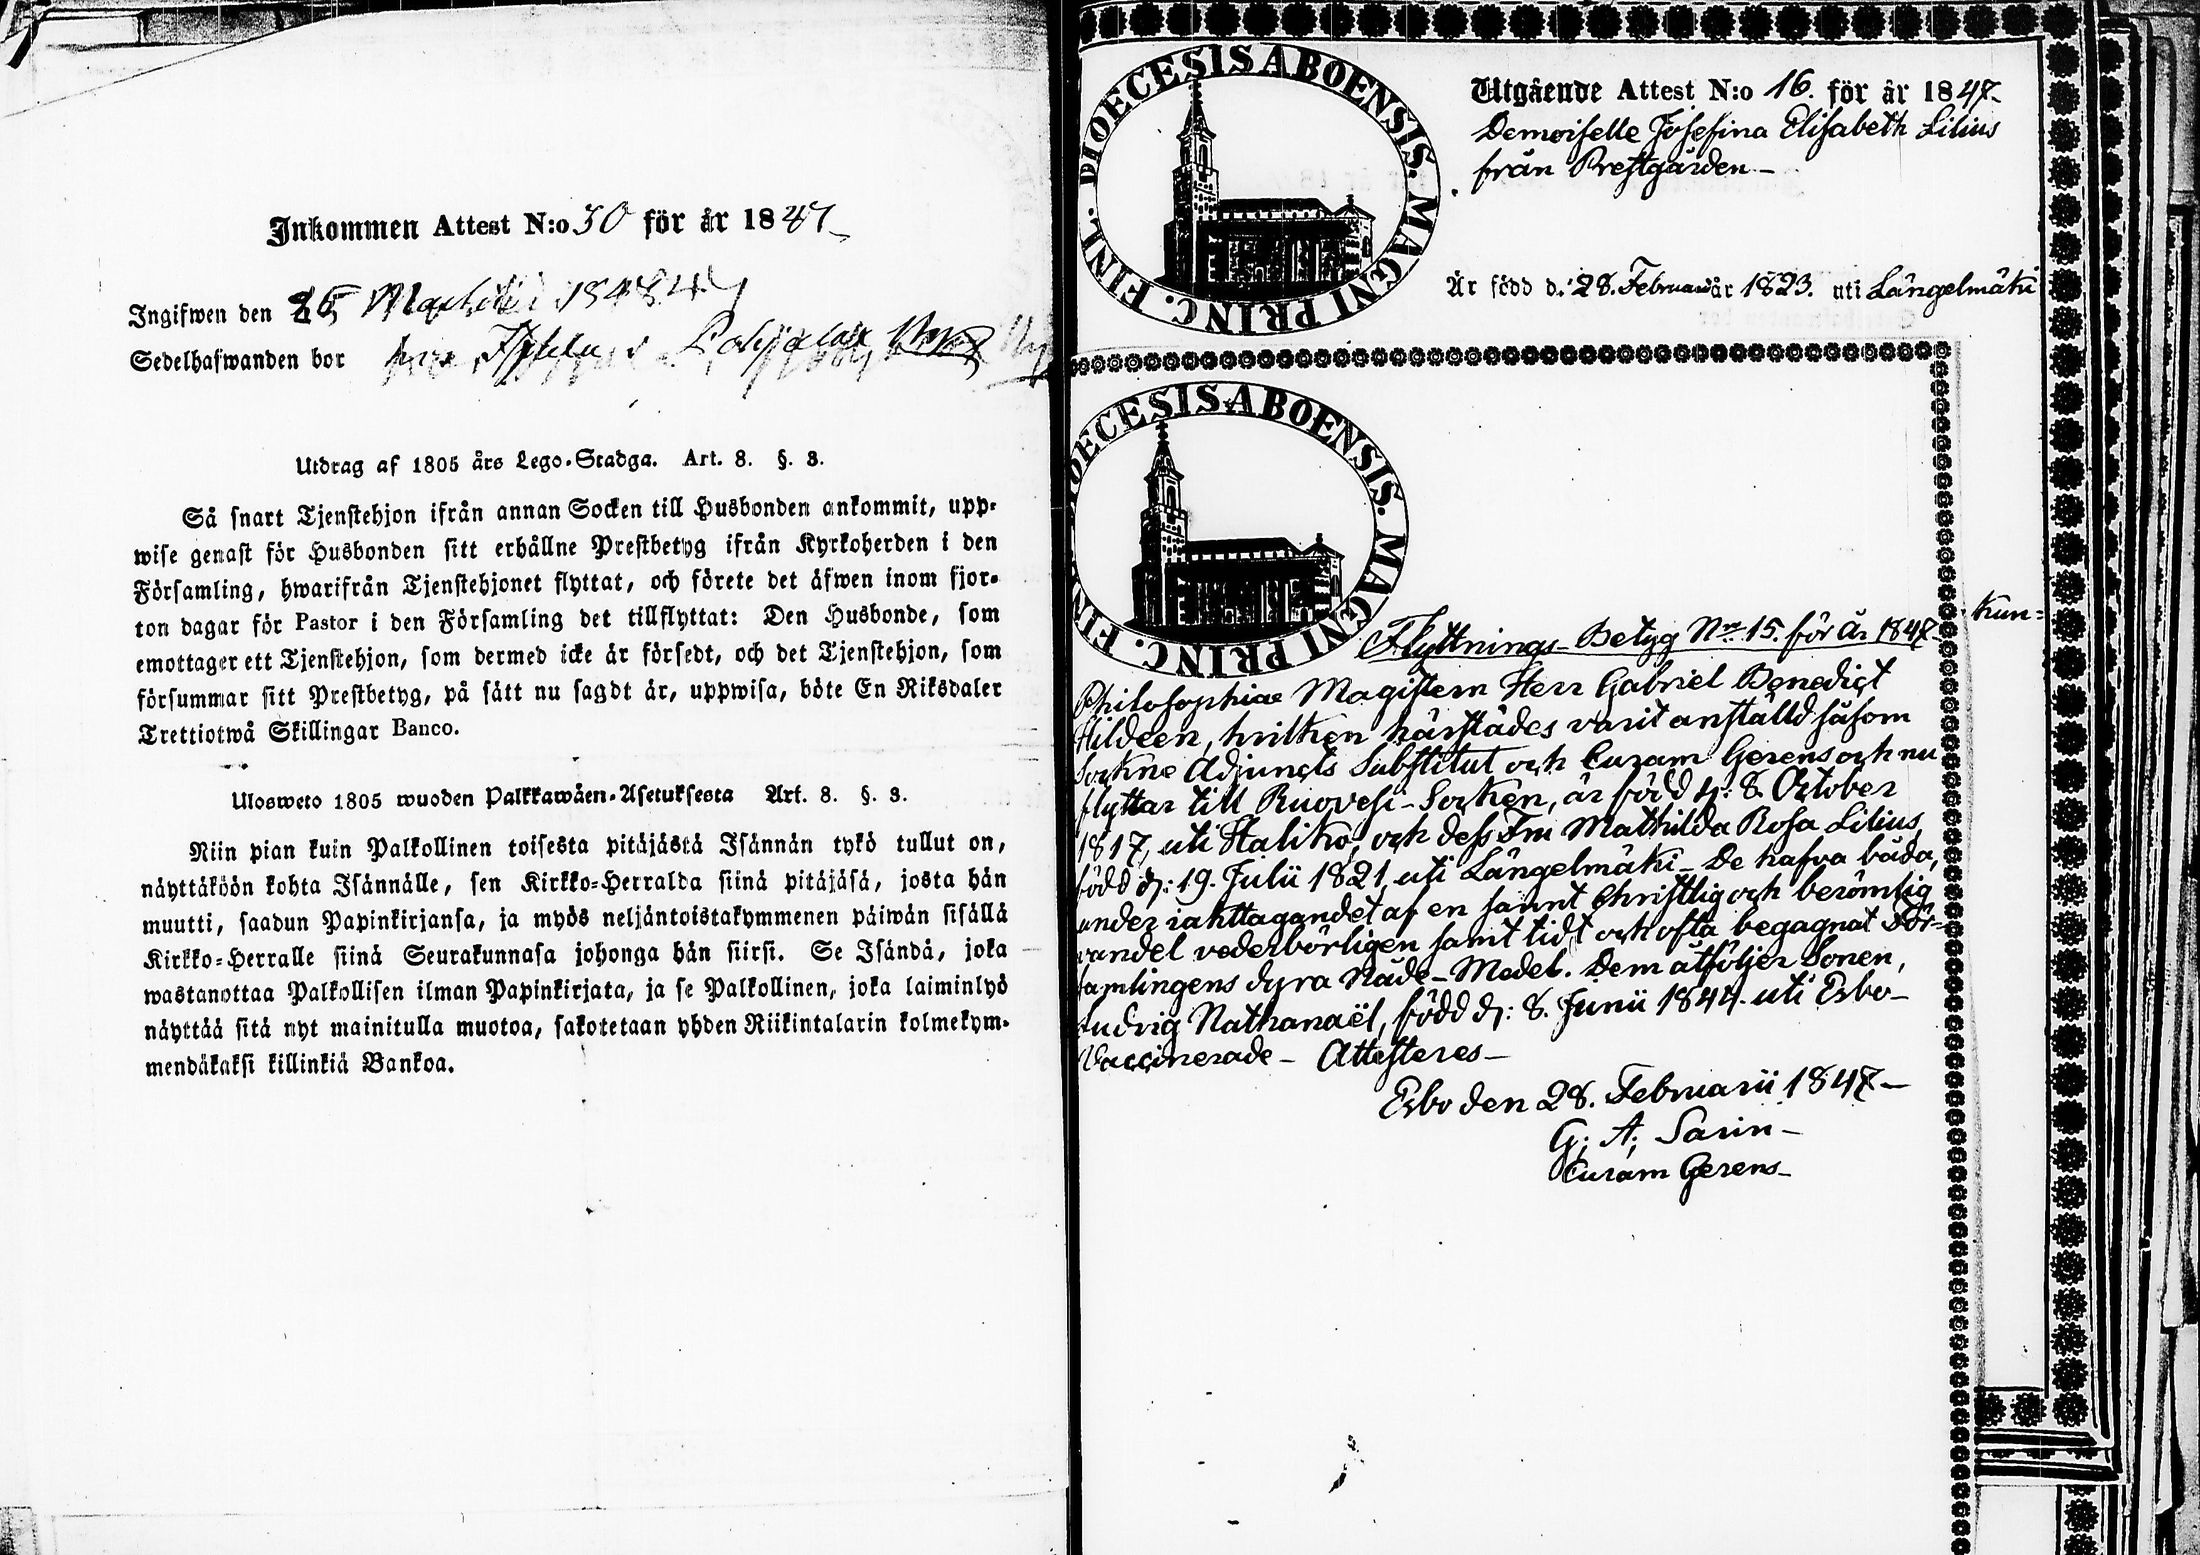 Inkommen Attest N:o 50 för år 1847
Ingifwen den 1847
Sedelhafwanden bor
Utdrag af 1805 års Lego-Stadga. Art. 8. §. 3.
Så snart Tjenstehjon ifrån annan Socken till Husbonden ankommit, upp-
wise genast för Husbonden sitt erhållne Prestbetyg ifrån Kyrkoherden i den
Församling, hwarifrån Tjenstehjonet flyttat, och förete det äfwen inom fjor-
ton dagar för Pastor i den Församling det tillflyttat: Den Husbonde, som
emottager ett Tjenstehjon, som dermed icke är försedt, och det Tjenstehjon, som
försummar sitt Prestbetyg, på sätt nu sagdt är, uppwisa, böte En Riksdaler
Trettiotwå Skillingar Banco.
Ulosweto 1805 wuoden Palkkawäen-Asetuksesta Art. 8. §. 3.
Niin pian kuin Palkollinen toisesta pitäjästä Isännän tykö tullut on,
näyttäköön kohta Isännälle, sen Kirkko-Herralda siinä pitäjäsä, josta hän
muutti, saadun Papinkirjansa, ja myös neljäntoistakymmenen päiwän sisällä
Kirkko-Herralle siinä Seurakunnasa johonga hän siirsi. Se Isändä, joka
wastanottaa Palkollisen ilman Papinkirjata, ja se Palkollinen, joka laiminlyö
näyttää sitä nyt mainitulla muotoa, sakotetaan yhden Riikintalarin kolmekym-
mendäkaksi killinkiä Bankoa.
DIOECESIS ABOENSIS. MAGNI PRINC. FINL.
Utgående Attest N:o 16. för år 1847
Demoiselle Josefina Elisabeth Lilius
från Prestgården
Är född d. 28. Februari år 1823. uti Längelmäki
OECESIS ABOENSIS. MAGNI PRINC. FIN
kun=
Flyttnings-Betyg Nr. 15. för År 1847
Philosophiae Magistern Herr Gabriel Benedict
Hildeen, hvilken härstädes varit anställd såsom
Sockne Adjuncts Substitut och Curam Gerens och nu
flyttar till Ruovesi-Socken, är född d: 8. October
1817, uti Haliko, och dess Fru Mathilda Rosa Lilius,
född d: 19. Julii 1821, uti Längelmäki. De hafva båda,
under iakttagandet af en sannt Christlig och berömlig
vandel vederbörligen samt tidt och ofta begagnat För-
samlingens dyra Nåde-Medel. Dem åtföljer Sonen,
Ludvig Nathanaël, född d: 8. Junii 1844. uti Esbo
Vaccinerade - Attesteres
Esbo den 28. Februarii 1847
G. A. Sarin
Curam Gerens